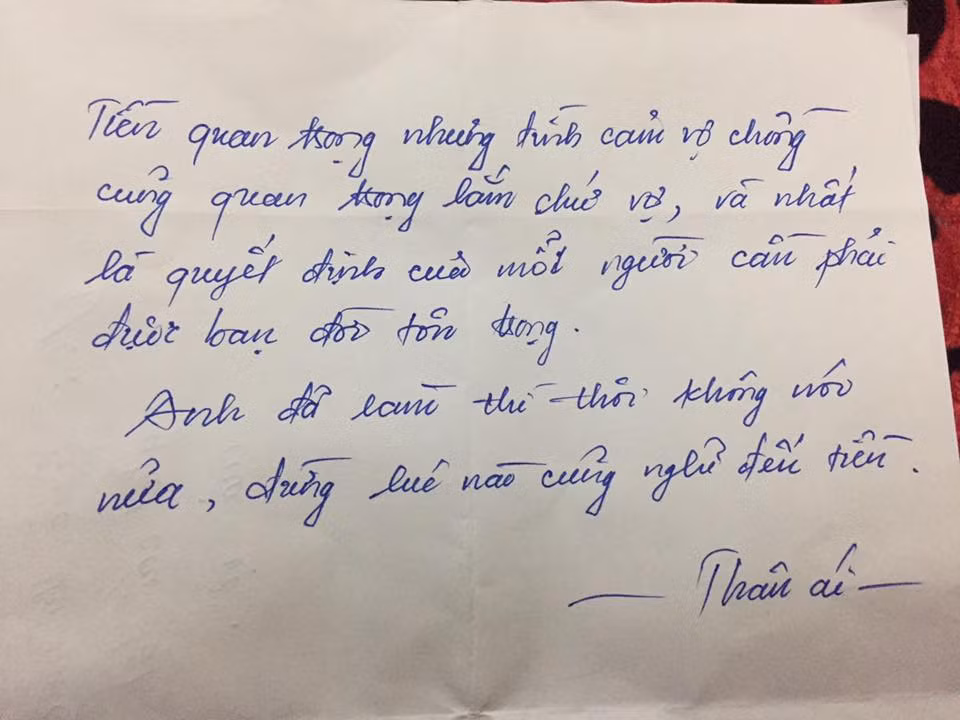 Tiền quan trọng nhưng tình cảm vợ chồng
cũng quan trọng lắm chứ vợ, và nhất
là quyết định của mỗi người cần phải
được bạn đời tôn trọng.
Anh đã làm thì thôi không nói
nửa, đừng lúc nào cũng nghỉ đến tiền.
— Thân ái —